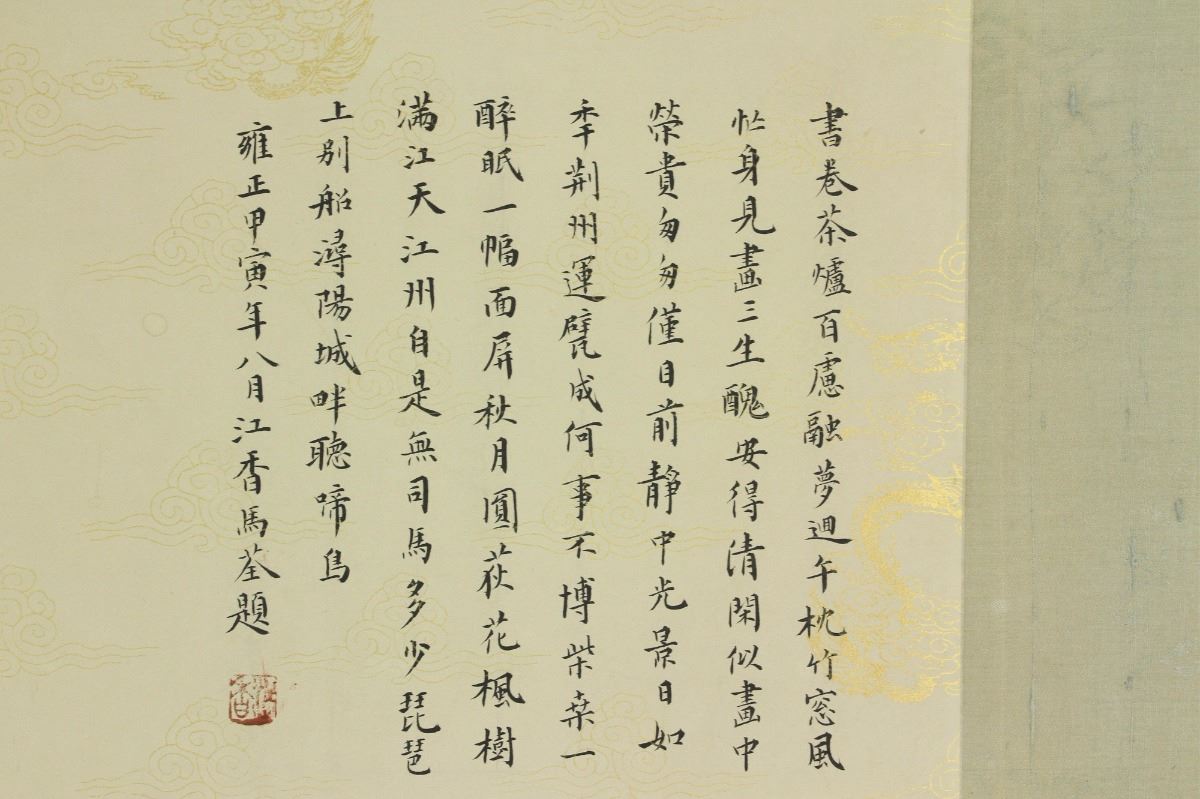 書卷茶爐百慮融夢迴午枕竹窓風
忙身見畫三生醜安得清閑似畫中
榮貴匆匆僅目前靜中光景日如
年荆州運甓成何事不博柴桑一
醉眠一幅面屏秋月圓荻花楓樹
滿江天江州自是無司馬多少琵琶
上别船潯陽城畔聽啼鳥
雍正甲寅年八月江香馬荃題
江香